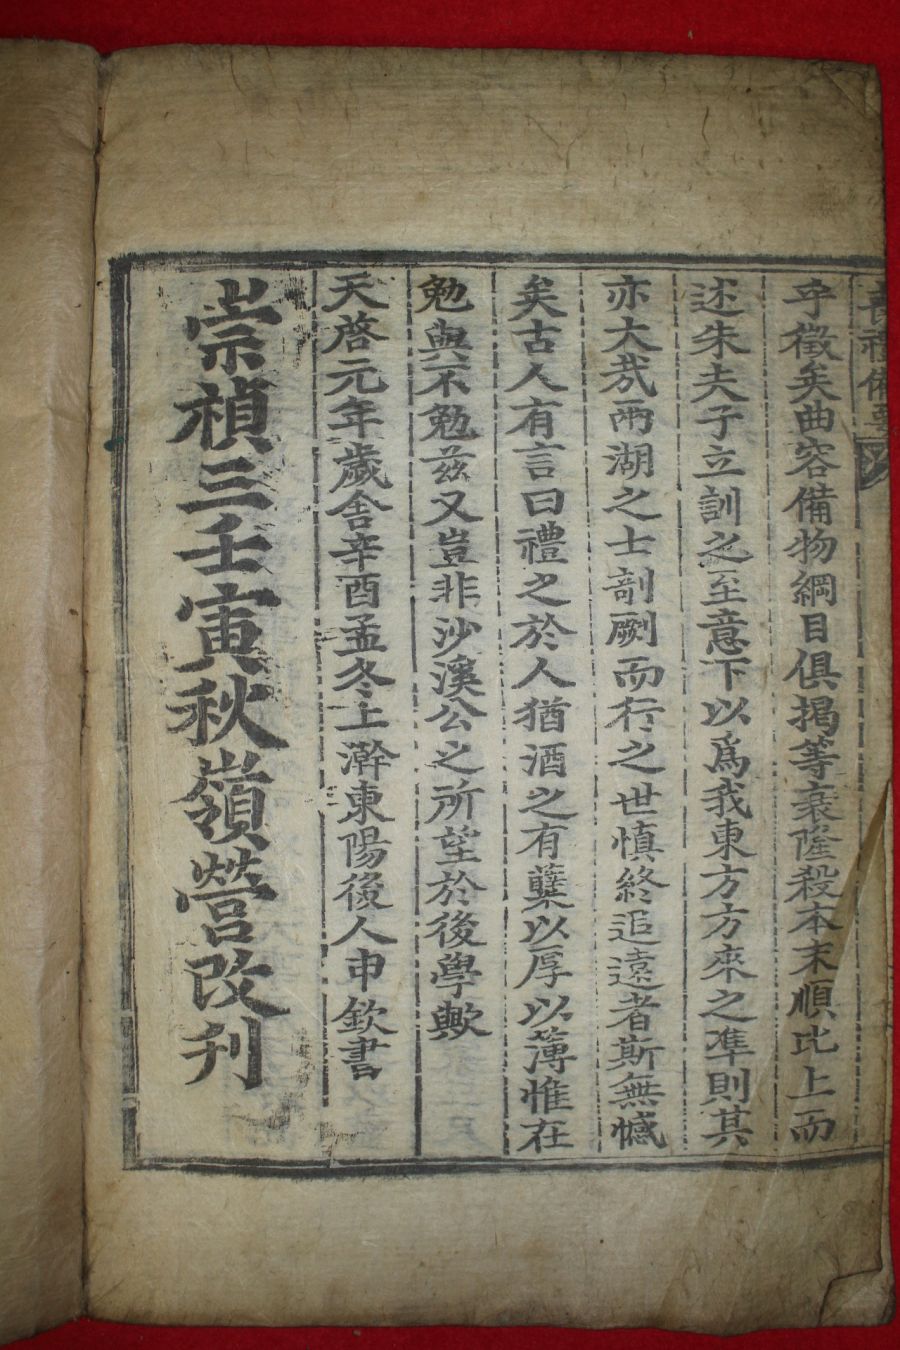 喪禮備要
乎徵矣曲容備物綱目俱揭等衰隆殺本末順比上而
述朱夫子立訓之至意下以爲我東方方來之準則其
亦大哉兩湖之士剞劂而行之世愼終追遠者斯無憾
矣古人有言曰禮之於人猶酒之有糱以厚以薄惟在
勉與不勉玆又豈非沙溪公之所望於後學歟
天啓元年歲舍辛酉孟冬上澣東陽後人申欽書
崇禎三壬寅秋嶺營改刊